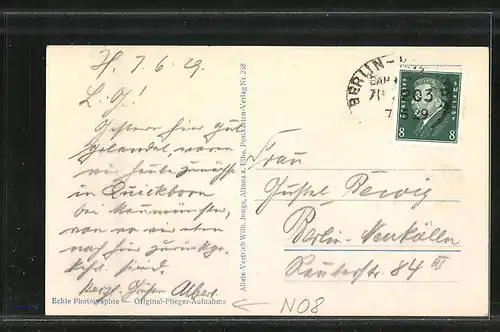 H. 7.6.29.
L. G!
Gestern hier gut
gelandet, waren
wir heute zunächst
in Quickborn
bei Neumünster,
von wo wir eben
nach hier zurückge-
kehrt sind.
Herzl. Grüße Albert
Echte Photographie Original-Flieger-Aufnahme
Allein-Vertrieb Wilh. Junge, Altona a. Elbe. Postkarten-Verlag Nr. 238
BERLIN
8 8
Frau
Gustel Bewig
Berlin-Neukölln
84 III
NO8